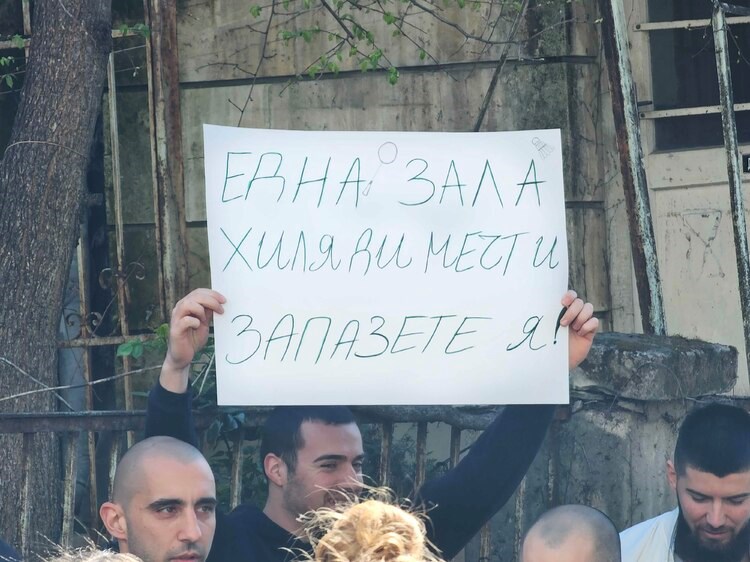 ЕДНА ЗАЛА
ХИЛЯДИ МЕЧТИ
ЗАПАЗЕТЕ Я!